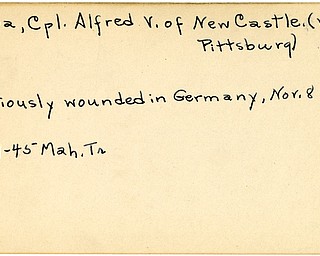 a, Cpl. Alfred V. of New Castle. (
Pittsburg)
iously wounded in Germany, Nov. 8
-45 Mah. Tr